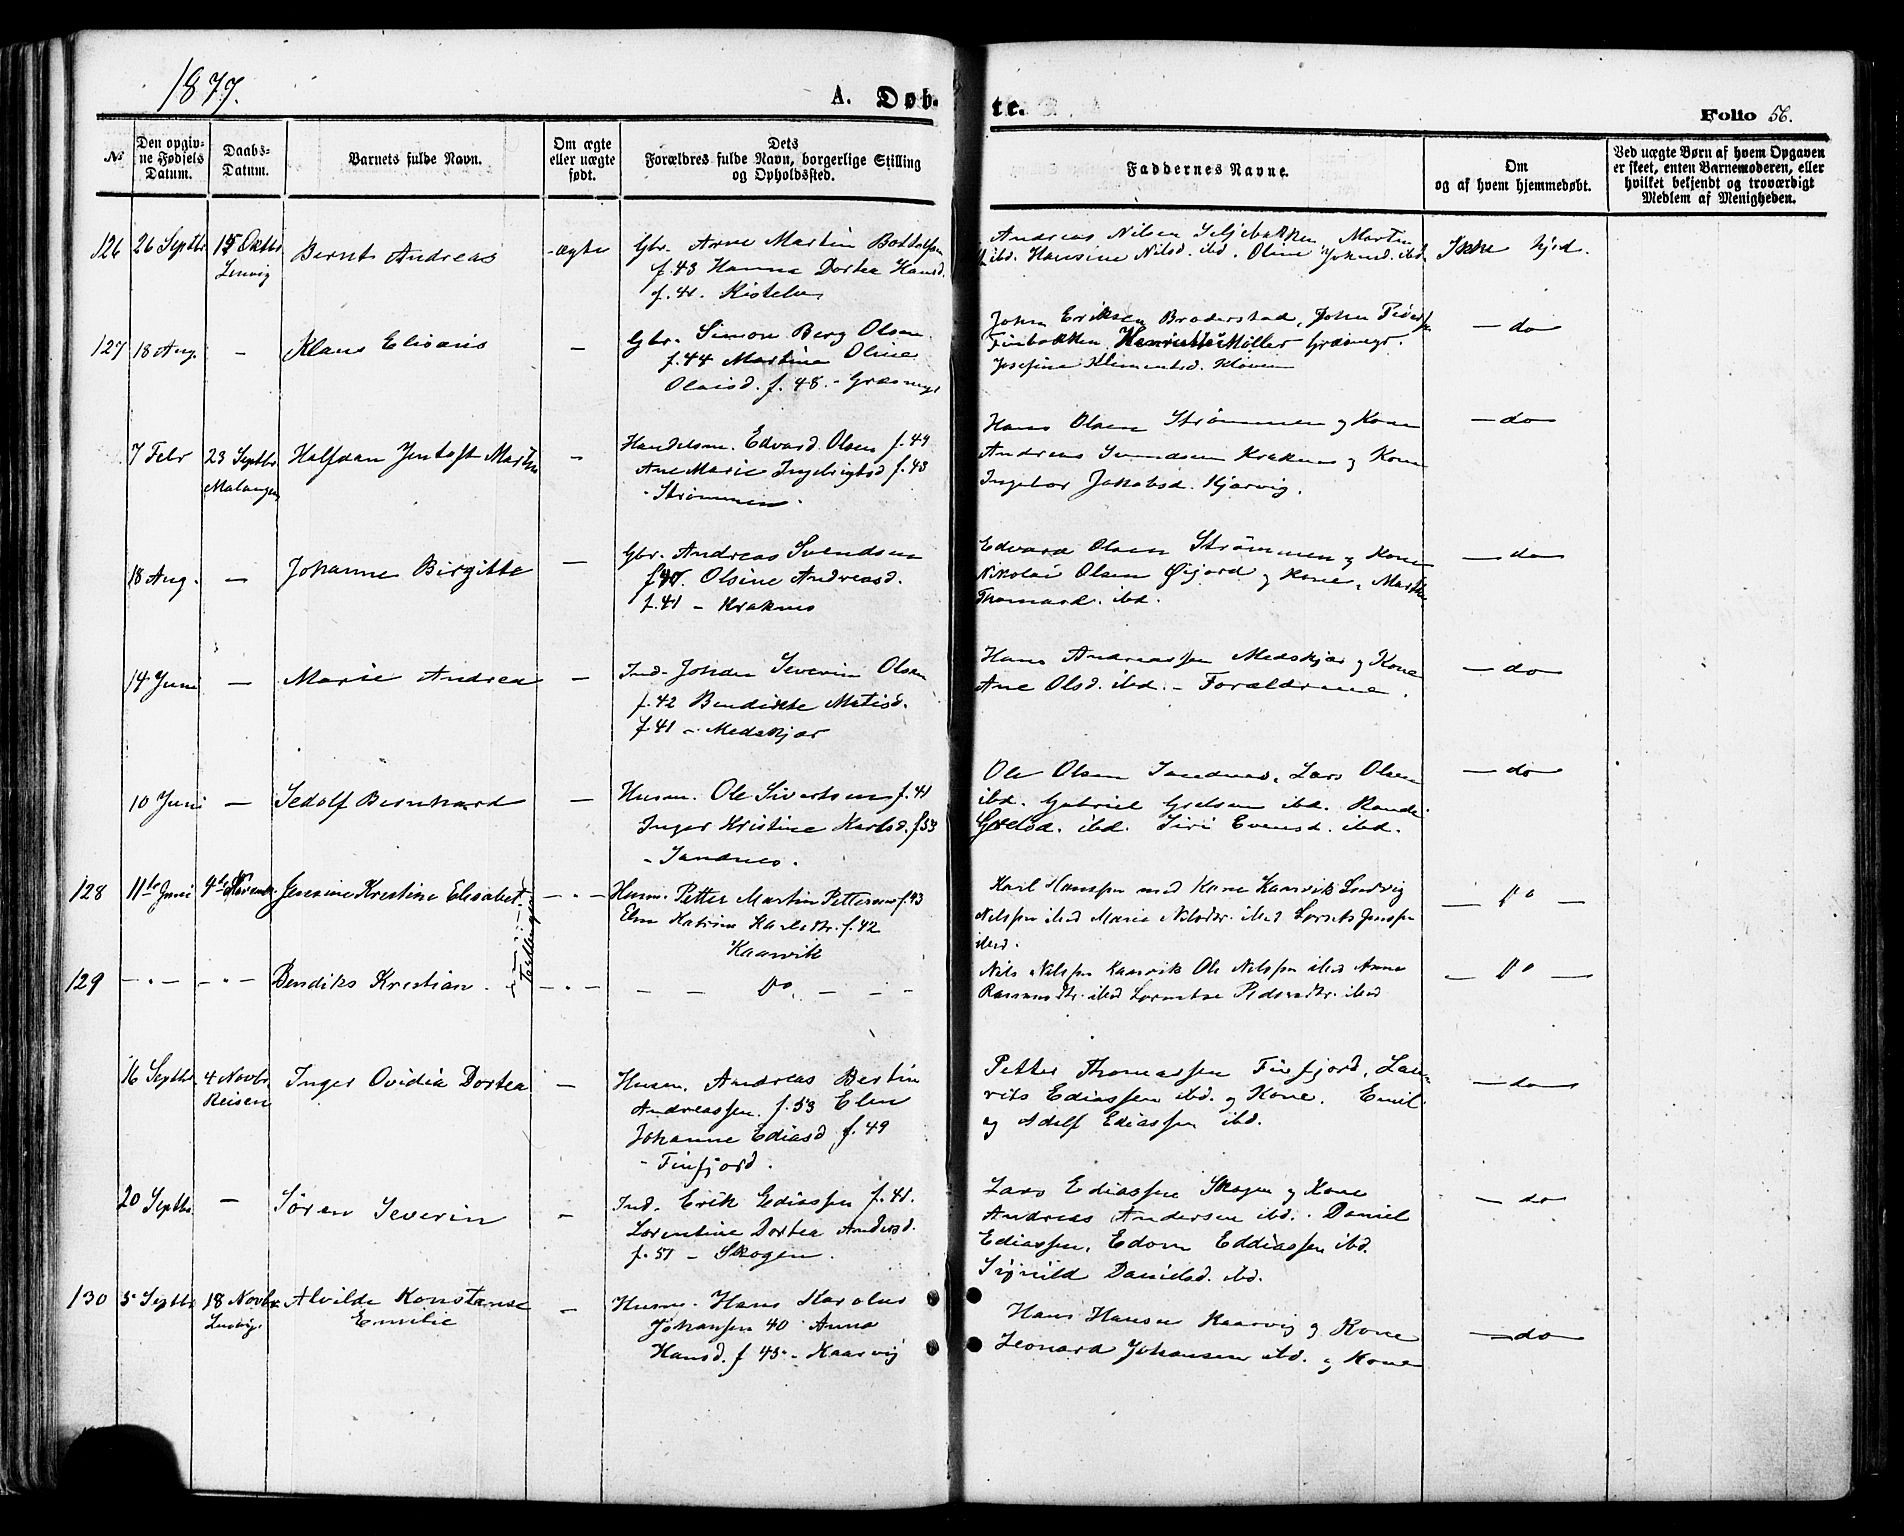 1877.
A. Døb-
te.
Folio 56.
No
Den opgiv-
ne Fødsels
Datum.
Daabs-
Datum.
Barnets fulde Navn.
Om ægte
eller uægte
født.
Dets
Forældres fulde Navn, borgerlige Stilling
og Opholdssted.
Faddernes Navne.
Om
og af hvem hjemmedøbt.
Ved uægte Børn af hvem Opgaven
er skeet, enten Barnemoderen, eller
hvilket bekjendt og troværdigt
Medlem af Menigheden.
126 26 Septbr 15 Oktbr
Lenvig
Bernt Andreas
ægte
Gbr. Arne Martin Bottolfsen
f. 43 Hanna Dortea Hansd.
f. 41. Kistelv
Andreas Nilsen Seljebakken, Morten
ibd. Hansine Nilsd. ibd. Oline Johnsd. ibd.
Ikke hjd.
127 18 Aug. —
Klaus Elisæus
—
Gbr. Simon Berg Olsen
f. 44 Martine Oline
Olaisd. f. 48. - Græsmyr
John Eriksen Broderstad, John
Finbakken, Henriette Møller Græsmyr.
Josefine Klementsd. Kløven
— do
7 Febr 23 Septbr
Malangen
Halfdan Jentoft Martin
—
Handelsm. Edvard Olsen f. 49
Ane Marie Ingebrigtsd f. 43
- Strømmen.
Hans Olsen Strømmen og Kone
Andreas Svendsen Kraknes og Kone
Ingebor Jakobsd. Kjosvig.
— do
18 Aug. —
Johanne Birgitte
—
Gbr. Andreas Svendsen
f. 40. Olsine Andreasd.
f. 41 - Kraknes
Edvard Olsen Strømmen og Kone
Nikolai Olsen Øijord og Kone, Marthe
Thomasd. ibd.
— do
14 Juni —
Marie Andrea
—
Ind. Johan Severin Olsen
f. 42 Bendikte Matisd.
f. 41 - Medskjær
Hans Andreassen Medskjær og Kone
Ane Olsd. ibd. - Forældrene.
— do
10 Juni —
Sedolf Bernhard
—
Husm. Ole Sivertsen f. 41
Inger Kristine Karlsd. f 53
- Sandnes.
Ole Olsen Sandnes, Lars Olsen
ibd. Gabriel Grelsen ibd. Randi
Grelsd. ibd. Siri Evensd. ibd.
— do
128 11te Juni 4de Novemb.
Jensine Kristine Elisabet
Tvillinger
- " -
Husm. Petter Martin Pettersen f. 43
Elen Katrine Karlsdtr. f. 42
Kaarvik
Karl Hanssen med Kone Kaarvik Ludvig
Nilssen ibid Marie Nilsdtr. ibid Lorents Jenssen
ibid.
— Do —
129 - " - - " -
Bendiks Kristian.
- " -
— — Do. — —
Nils Nilssen Kaarvik Ole Nilssen ibid Anna
Rasmusdtr. ibid Lorentse Pedersdtr. ibid
— Do —
16 Septbr. 4 Novbr.
Reisen
Inger Ovidia Dortea
—
Husm. Andreas Bertin
Andreassen. f. 53 Elen
Johanne Ediasd f. 49
- Finfjord.
Petter Thomassen Finfjord, Lau-
rits Ediassen ibd. og Kone. Emil
og Adolf Ediassen ibd.
— do
20 Septbr. —
Søren Severin
—
Ind. Erik Ediassen f. 41.
Lorentine Dortea Andersd.
f. 51 - Skogen.
Lars Ediassen Skogen og Kone
Andreas Andersen ibd. Daniel
Ediassen, Edom Eddiassen ibd.
Signild Danielsd. ibd.
— do
130 5 Septbr 18 Novbr
Lenvig.
Alvilde Konstanse
Emilie
—
Husm. Hans Karolus
Johansen 40 Anna
Hansd. f 45 - Kaarvig
Hans Hansen Kaarvig og Kone
Leonard Johansen ibd. og Kone
— do